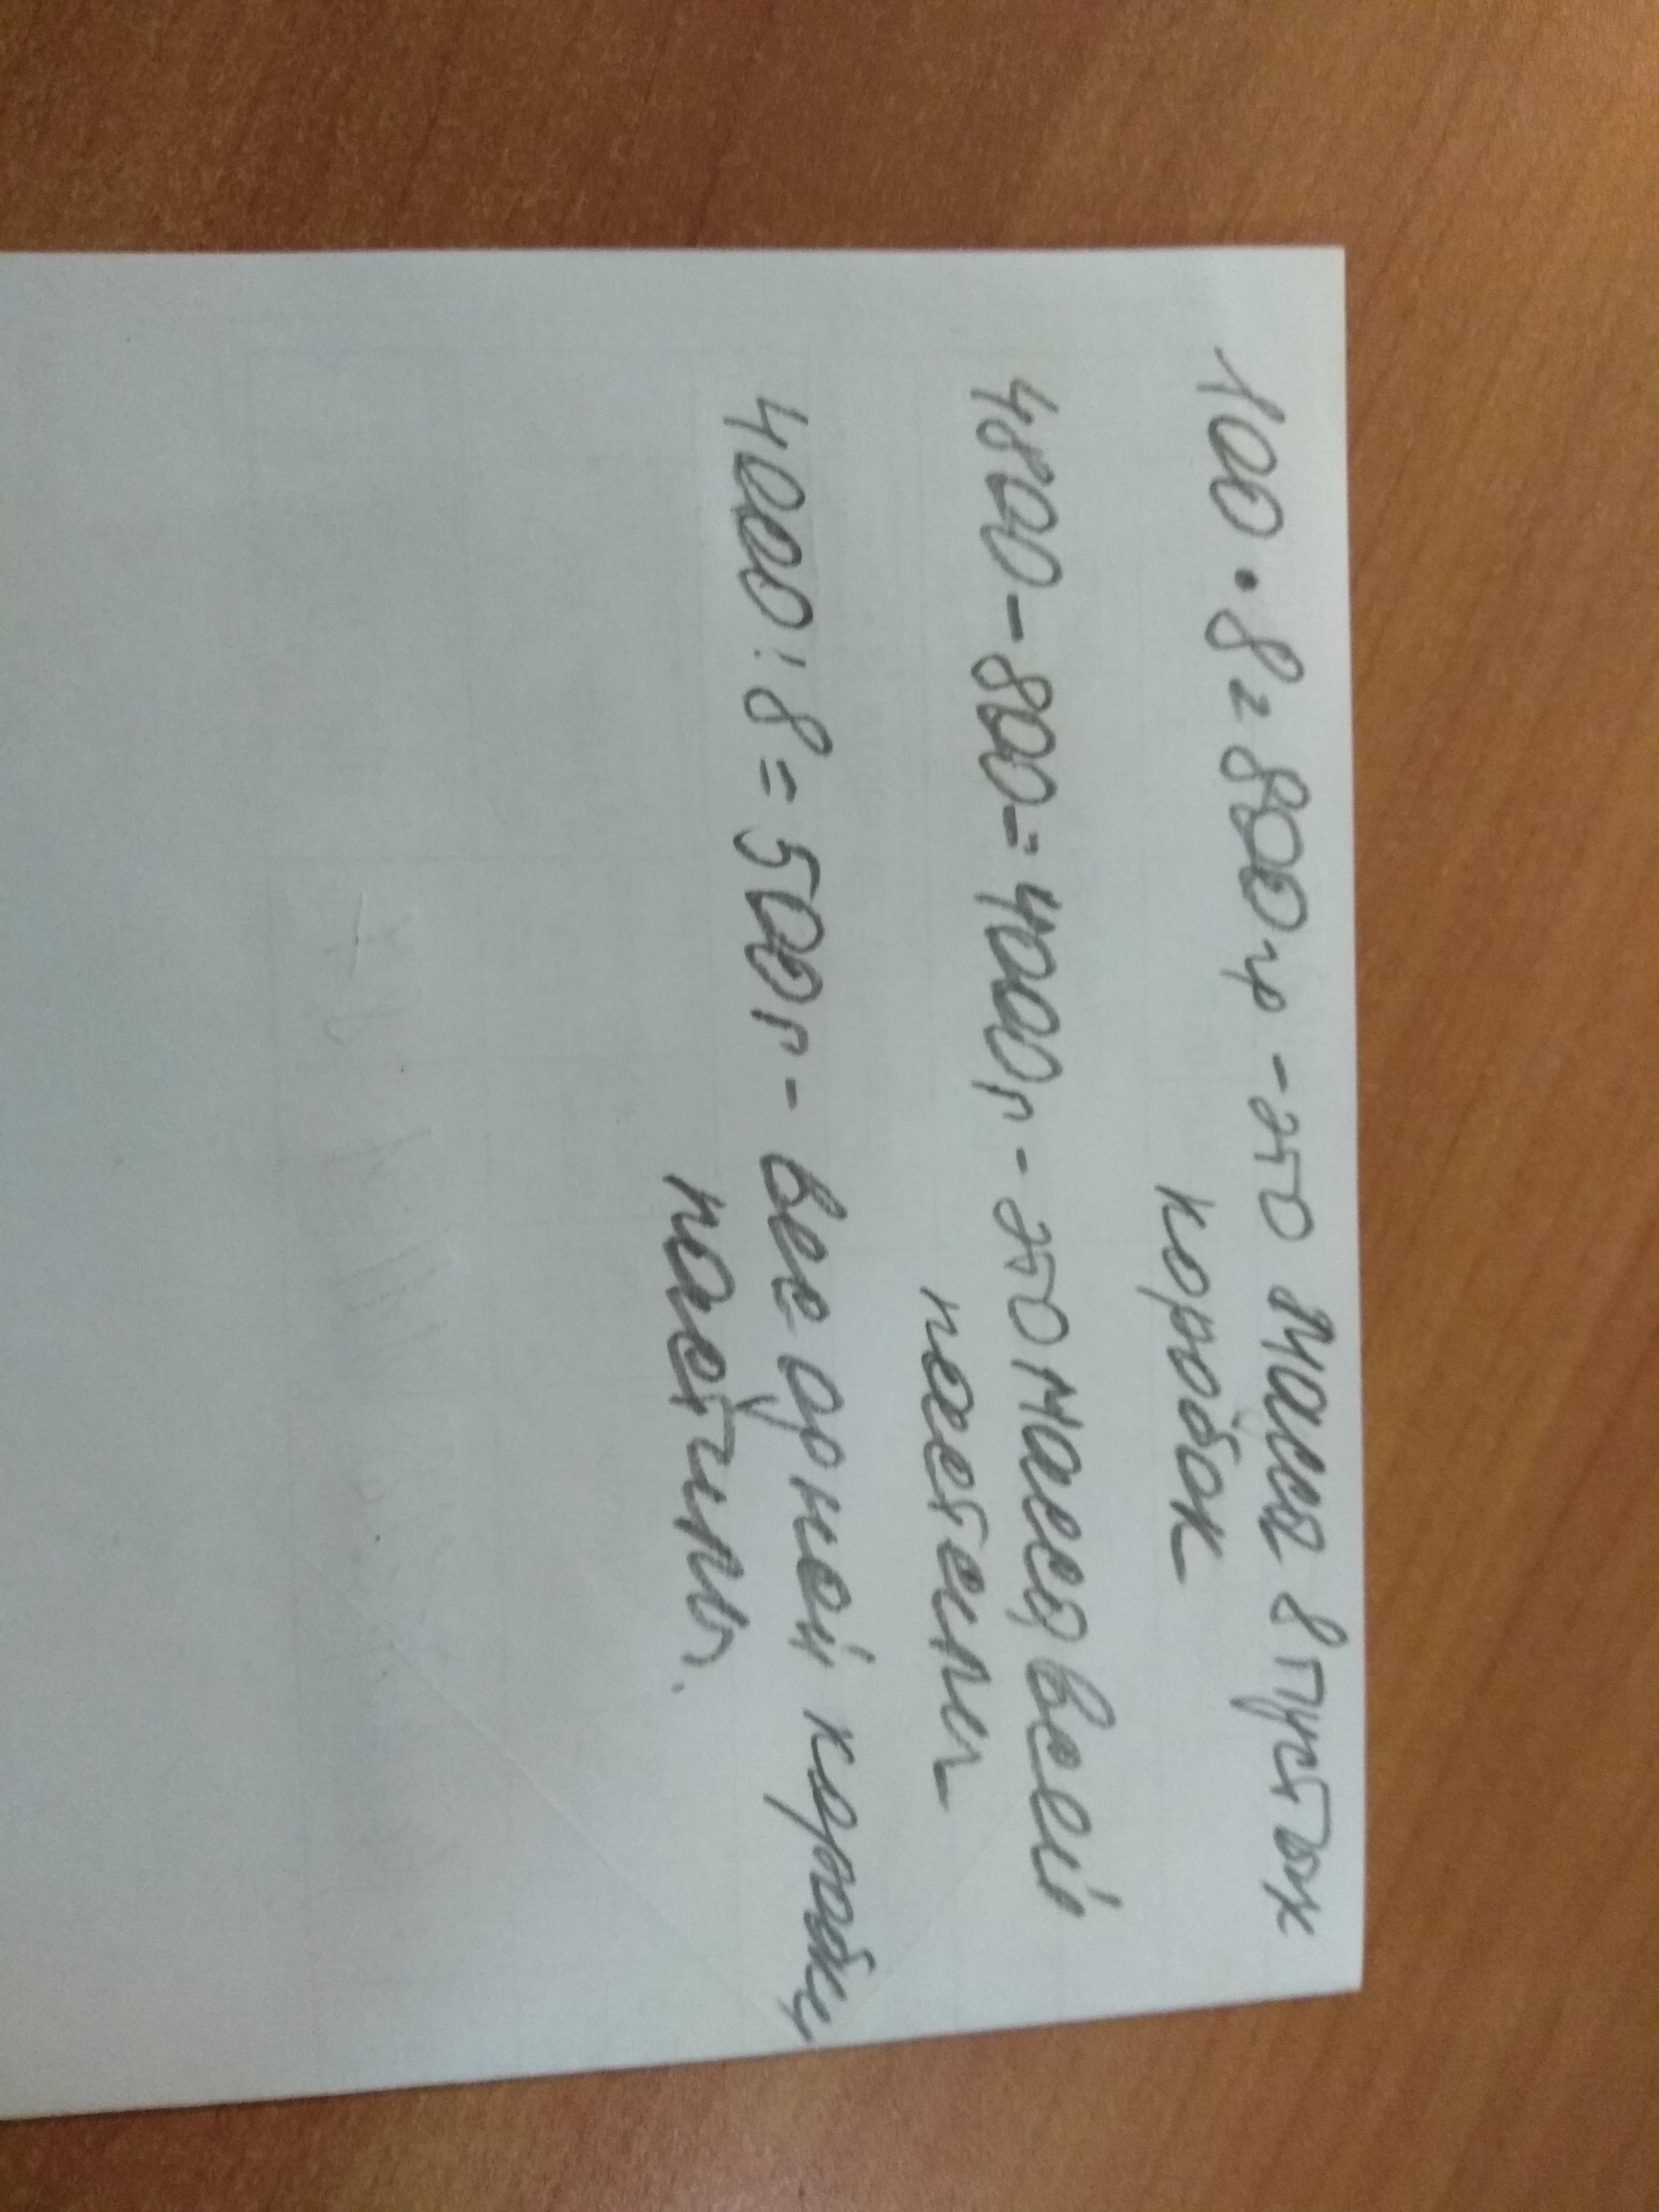 100 · 8 = 800 гр - это масса 8 пустых
коробок
4800 - 800 = 4000 г - это масса всей
пастилы
4000 : 8 = 500 г - вес одной коробки
пастилы.